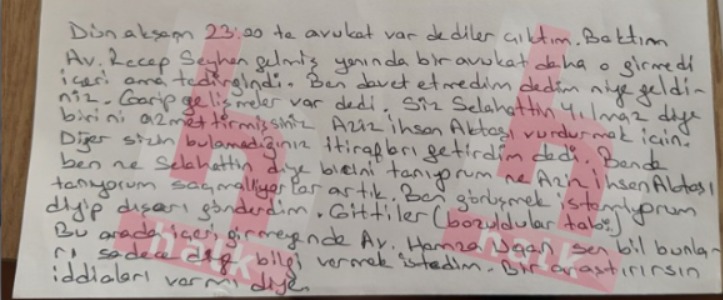 Dün akşam 23:00 te avukat var dediler çıktım. Baktım
Av. Recep Seyhan gelmiş yanında bir avukat daha o girmedi
içeri ama tedirgindi. Ben davet etmedim dedim niye geldi-
niz. Garip gelişmeler var dedi. Siz Selahattin Yılmaz diye
birini azmettirmişsiniz Aziz İhsan Aktaşı vurdurmak için.
Diğer sizin bulamadığınız itirafları getirdim dedi. Bende
ben ne Selahattin diye birini tanıyorum ne Aziz İhsan Aktaşı
tanıyorum saçmalıyorlar artık. Ben görüşmek istemiyorum
diyip dışarı gönderdim. Gittiler (bozuldular tabi)
Bu arada içeri girmeyende Av. Hamza Uçan sen bil bunla-
rı sadece diye bilgi vermek istedim. Bir araştırırsın
iddiaları varmı diye
h
halk
h
halk